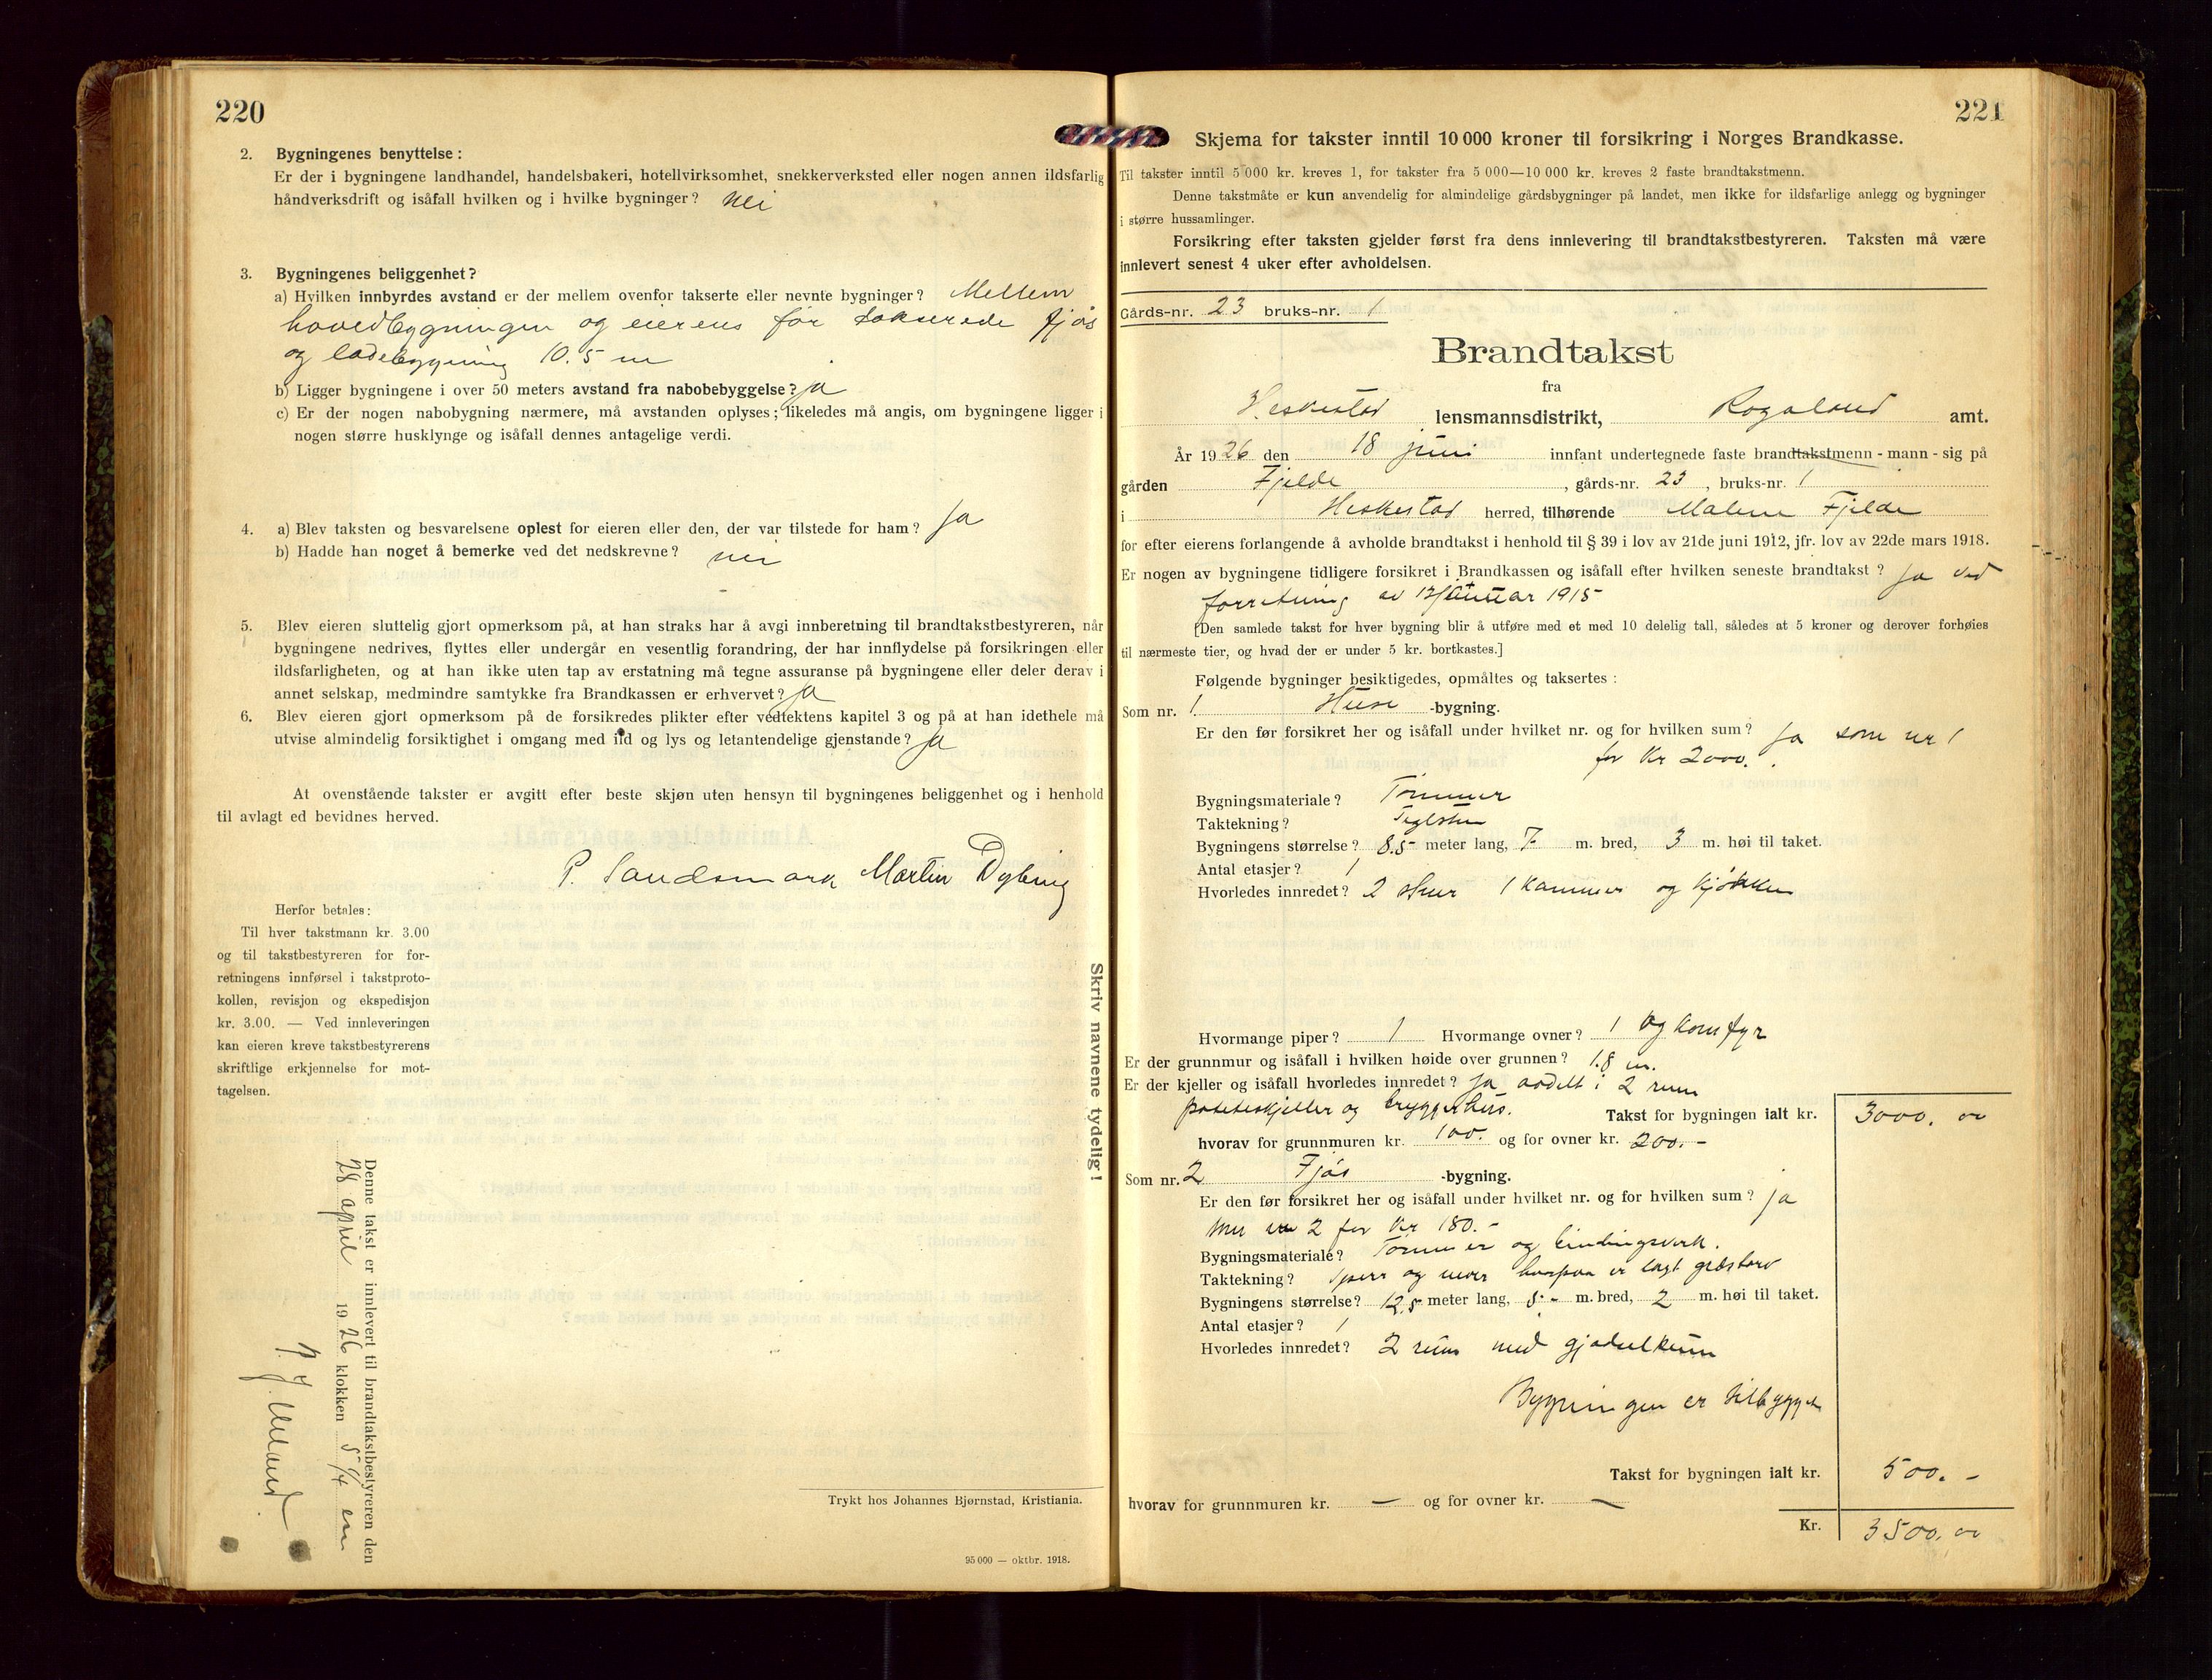 220
2. Bygningenes benyttelse:
Er der i bygningene landhandel, handelsbakeri, hotellvirksomhet, snekkerverksted eller nogen annen ildsfarlig
håndverksdrift og isåfall hvilken og i hvilke bygninger? Nei
3. Bygningenes beliggenhet?
a) Hvilken innbyrdes avstand er der mellem ovenfor takserte eller nevnte bygninger? Mellem
hovedbygningen og eierens før takserede fjøs
og ladebygning 10.5 m
b) Ligger bygningene i over 50 meters avstand fra nabobebyggelse? ja
c) Er der nogen nabobygning nærmere, må avstanden oplyses; likeledes må angis, om bygningene ligger i
nogen større husklynge og isåfall dennes antagelige verdi.
4. a) Blev taksten og besvarelsene oplest for eieren eller den, der var tilstede for ham? Ja
b) Hadde han noget å bemerke ved det nedskrevne? nei
5. Blev eieren sluttelig gjort opmerksom på, at han straks har å avgi innberetning til brandtakstbestyreren, når
bygningene nedrives, flyttes eller undergår en vesentlig forandring, der har innflydelse på forsikringen eller
ildsfarligheten, og at han ikke uten tap av erstatning må tegne assuranse på bygningene eller deler derav i
annet selskap, medmindre samtykke fra Brandkassen er erhvervet? Ja
6. Blev eieren gjort opmerksom på de forsikredes plikter efter vedtektens kapitel 3 og på at han idethele må
utvise almindelig forsiktighet i omgang med ild og lys og letantendelige gjenstande? Ja
At ovenstående takster er avgitt efter beste skjøn uten hensyn til bygningenes beliggenhet og i henhold
til avlagt ed bevidnes herved.
P. Sandsmark Martin Dybing
Herfor betales:
Til hver takstmann kr. 3.00
og til takstbestyreren for for-
retningens innførsel i takstproto-
kollen, revisjon og ekspedisjon
kr. 3.00. — Ved innleveringen
kan eieren kreve takstbestyrerens
skriftlige erkjennelse for mot-
tagelsen.
Skriv navnene tydelig!
Denne takst er innlevert til brandtakstbestyreren den
28 april 1926 klokken 5 em
Trykt hos Johannes Bjørnstad, Kristiania.
95 000 — oktbr. 1918.
221
Skjema for takster inntil 10 000 kroner til forsikring i Norges Brandkasse.
Til takster inntil 5 000 kr. kreves 1, for takster fra 5 000—10 000 kr. kreves 2 faste brandtakstmenn.
Denne takstmåte er kun anvendelig for almindelige gårdsbygninger på landet, men ikke for ildsfarlige anlegg og bygninger
i større hussamlinger.
Forsikring efter taksten gjelder først fra dens innlevering til brandtakstbestyreren. Taksten må være
innlevert senest 4 uker efter avholdelsen.
Gårds-nr. 23 bruks-nr. 1
Brandtakst
fra
Heskestad lensmannsdistrikt, Rogaland amt.
År 1926 den 18 juni innfant undertegnede faste brandtakstmenn - mann - sig på
gården Fjelde, gårds-nr. 23, bruks-nr. 1
i Heskestad herred, tilhørende Malene Fjelde
for efter eierens forlangende å avholde brandtakst i henhold til § 39 i lov av 21de juni 1912, jfr. lov av 22de mars 1918.
Er nogen av bygningene tidligere forsikret i Brandkassen og isåfall efter hvilken seneste brandtakst? Ja ved
forretning av 12 Januar 1915
[Den samlede takst for hver bygning blir å utføre med et med 10 delelig tall, således at 5 kroner og derover forhøies
til nærmeste tier, og hvad der er under 5 kr. bortkastes.]
Følgende bygninger besiktigedes, opmåltes og taksertes:
Som nr. 1. Huse -bygning.
Er den før forsikret her og isåfall under hvilket nr. og for hvilken sum? Ja som nr 1
for Kr 2000.
Bygningsmateriale? Tømmer
Taktekning? Teglsten
Bygningens størrelse? 8.5 meter lang, 7 m. bred, 3 m. høi til taket.
Antal etasjer? 1
Hvorledes innredet? 2 stuer 1 kammer og kjøkken
Hvormange piper? 1 Hvormange ovner? 1 og komfyr
Er der grunnmur og isåfall i hvilken høide over grunnen? 1.8 m.
Er der kjeller og isåfall hvorledes innredet? Ja avdelt i 2 rum
poteteskjeller og bryggerhus. Takst for bygningen ialt kr. 3000. 00
hvorav for grunnmuren kr. 100. og for ovner kr. 200.-
Som nr. 2 Fjøs -bygning.
Er den før forsikret her og isåfall under hvilket nr. og for hvilken sum? ja
2 for Kr 180.-
Bygningsmateriale? Tømmer og bindingsverk.
Taktekning? Sperr og never hvorpaa er lagt græstorv
Bygningens størrelse? 12.5 meter lang, 5.- m. bred, 2 m. høi til taket.
Antal etasjer? 1
Hvorledes innredet? 2 rum med gjødselkum
Bygningen er tilbygget
Takst for bygningen ialt kr. 500.-
hvorav for grunnmuren kr. — og for ovner kr. —
Kr. 3500. 00